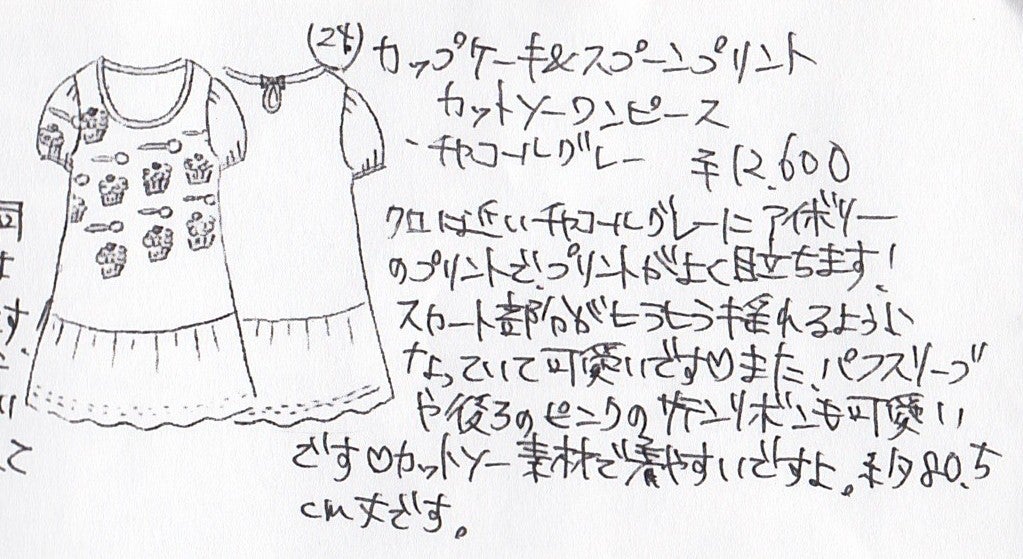 (24) カップケーキ&スプーンプリント
カットソーワンピース
・チャコールグレー ¥12.600
クロに近いチャコールグレーにアイボリー
のプリントで、プリントがよく目立ちます!
スカート部分がヒラヒラ揺れるように
なっていて可愛いです♡また、パフスリーブ
や後ろのピンクのサテンリボンも可愛い
です♡カットソー素材で着やすいですよ。約80.5
cm丈です。